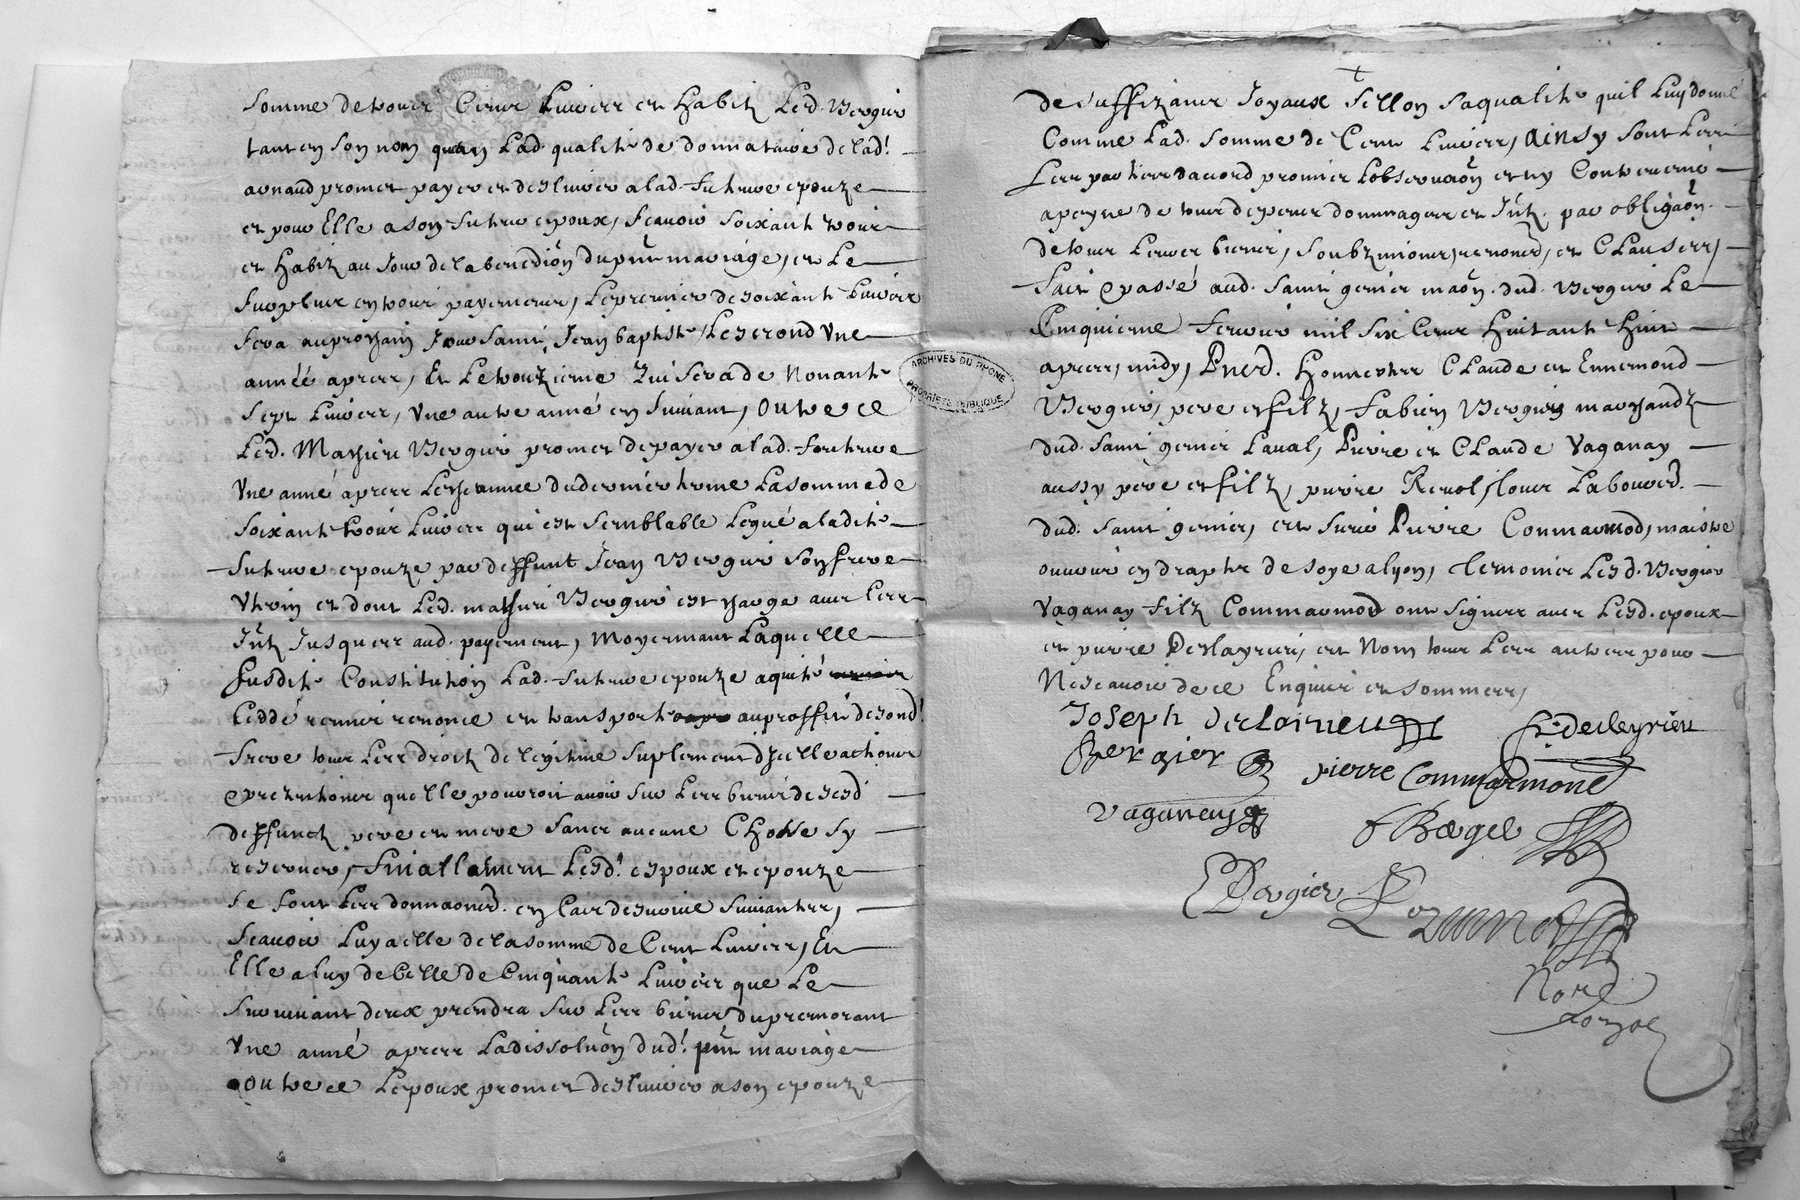 somme de trois Cent Livres et habitz Led. Bergier
tant en son nom quen Lad. qualité de donnataire de lad.
arnaud promet payer et deslivrer a lad. future epouze
et pour Elle a son futur epoux, scavoir soixante trois
et habitz au Jour de la benediction du pnt mariage, et Le
surplus en trois payements, Le premier de soixante Livres
sera au prochain Jour saint Jean baptiste, Le second Une
année apres, Et Le troizieme qui sera de Nonante
sept Livres, Une autre anné en suivant, outre ce
Led. Mathieu Bergier promet de payer a lad. future
Une anné apres du dernier terme La somme de
soixante trois Livres qui est semblable Legué a ladite
future epouze par deffunt Jean Bergier son frere
Uterin et dont Led. mathieu Bergier est charge avec Les
Int. Jusques aud. payement, Moyennant Laquelle
susdite Constitution Lad. future epouze a quité
Ceddé remis renonce et transporte au proffit de sond.
frere tous Les droitz de legitime suplement d'Icelle actions
pretentions quelle pouvoit avoir sur Les biens de sesd
deffunctz pere et mere sans aucune Chose sy
reserver, finallement Lesd. espoux et epouze
se sont Les donnaons en cas de survie suivantes,
scavoir Luy a elle de la somme de Cent Livres, Et
Elle a luy de Celle de Cinquante Livres que Le
survivant deux prendra sur Les biens du premorant
Une anné apres La dissoluon dud. pnt mariage
outre ce Lepoux promet deslivrer a son epouze
de suffizants Joyaux sellon sa qualité quil Luy donne
Comme Lad. somme de Cent Livres, Ainsy sont Les
d'acord promis Lobservaon et ny Contrevenir
a peyne de tous depens dommages et Int. par obligaon
de tous Leurs biens, soubzmions, renond, et Clauses,
fait et passé aud. saint genis maon dud. Bergier Le
Cinquieme fevrier mil six Cent huitante huit
apres, midy, Pnt. honnestes Claude et Ennemond
Bergier, pere et filz, fabien Bergier marchandz
dud. saint genis Laval, Pierre et Claude Vaganay
aussy pere et filz, pierre Revol, Labour.
dud. saint genis, et sieur Pierre Conmarmod, maistre
ouvrier en draptz de soye a lyon, temoins Lesd. Bergier
Vaganay filz Commarmod ont signes avec Lesd. epoux
et pierre Deslayrieu, et Nom tous Les autres pour
Ne scavoir de ce Enquis et sommes,
Joseph
Bergier
pierre Commarmont
vaganay
Bergier
Nore